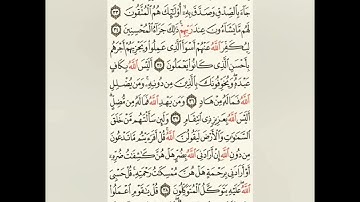 جَآءَ بِٱلصِّدْقِ وَصَدَّقَ بِهِۦٓ أُو۟لَٰٓئِكَ هُمُ ٱلْمُتَّقُونَ ٣٣
لَهُم مَّا يَشَآءُونَ عِندَ رَبِّهِمْ ذَٰلِكَ جَزَآءُ ٱلْمُحْسِنِينَ ٣٤
لِيُكَفِّرَ ٱللَّهُ عَنْهُمْ أَسْوَأَ ٱلَّذِى عَمِلُوا۟ وَيَجْزِيَهُمْ أَجْرَهُم
بِأَحْسَنِ ٱلَّذِى كَانُوا۟ يَعْمَلُونَ ٣٥ أَلَيْسَ ٱللَّهُ بِكَافٍ
عَبْدَهُۥ وَيُخَوِّفُونَكَ بِٱلَّذِينَ مِن دُونِهِۦ وَمَن يُضْلِلِ
ٱللَّهُ فَمَا لَهُۥ مِنْ هَادٍ ٣٦ وَمَن يَهْدِ ٱللَّهُ فَمَا لَهُۥ مِن مُّضِلٍّ
أَلَيْسَ ٱللَّهُ بِعَزِيزٍ ذِى ٱنتِقَامٍ ٣٧ وَلَئِن سَأَلْتَهُم مَّنْ خَلَقَ
ٱلسَّمَٰوَٰتِ وَٱلْأَرْضَ لَيَقُولُنَّ ٱللَّهُ قُلْ أَفَرَءَيْتُم مَّا تَدْعُونَ
مِن دُونِ ٱللَّهِ إِنْ أَرَادَنِىَ ٱللَّهُ بِضُرٍّ هَلْ هُنَّ كَٰشِفَٰتُ ضُرِّهِۦٓ
أَوْ أَرَادَنِى بِرَحْمَةٍ هَلْ هُنَّ مُمْسِكَٰتُ رَحْمَتِهِۦ قُلْ حَسْبِىَ
ٱللَّهُ عَلَيْهِ يَتَوَكَّلُ ٱلْمُتَوَكِّلُونَ ٣٨ قُلْ يَٰقَوْمِ ٱعْمَلُوا۟